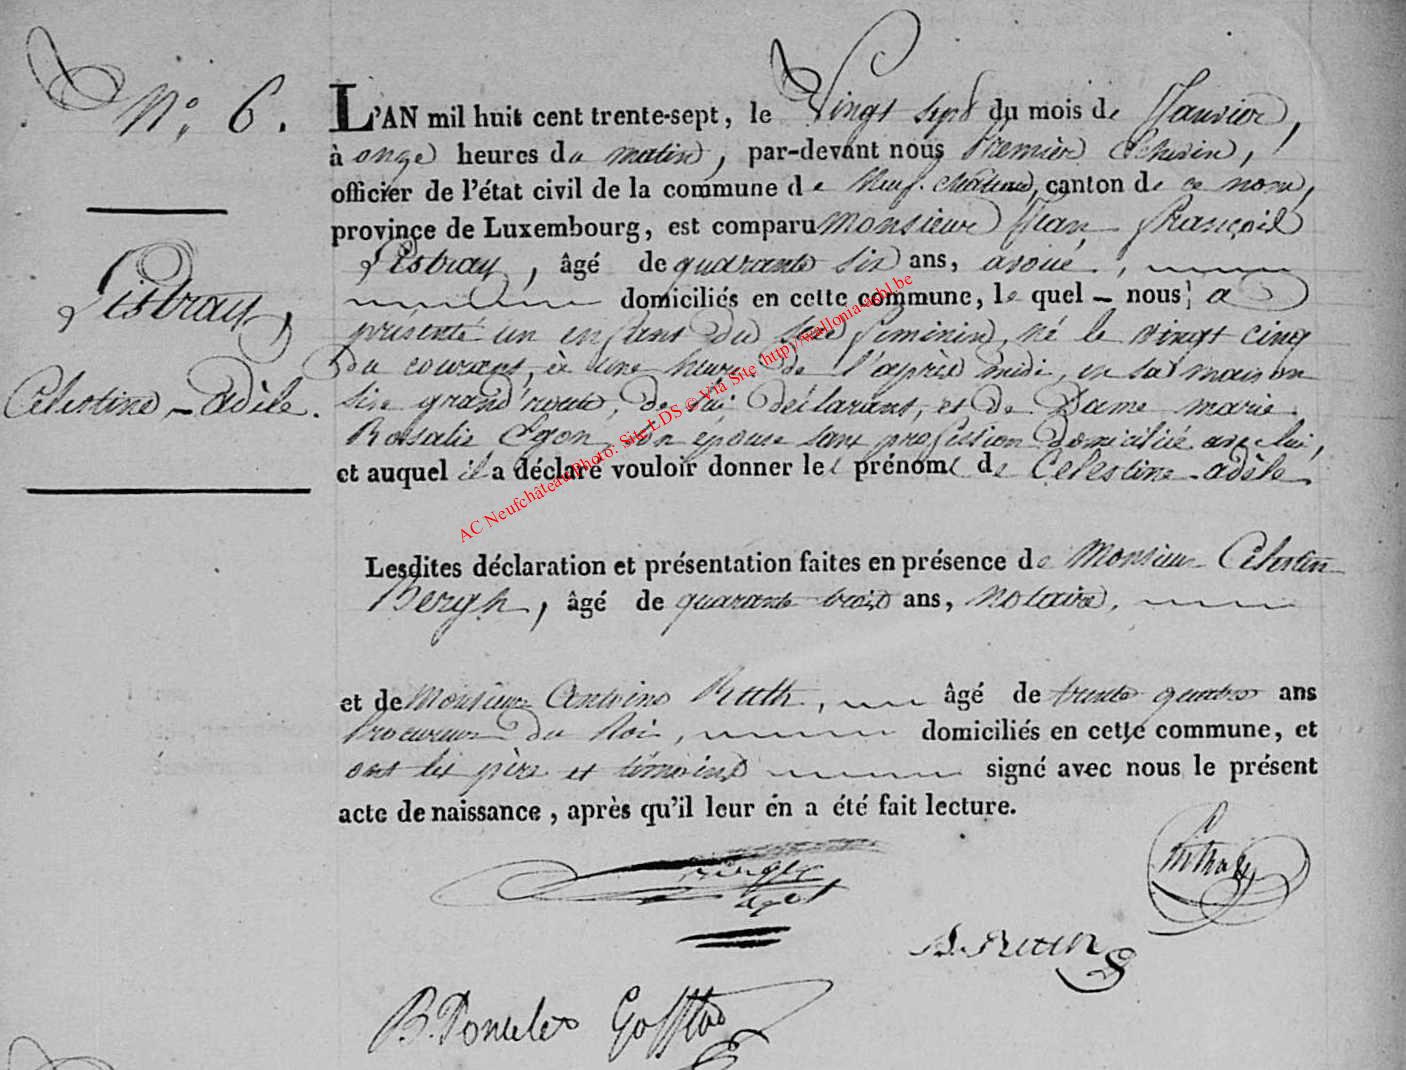 N° 6.
L'AN mil huit cent trente-sept, le Vingt sept du mois de Janvier,
à onze heures du matin, par-devant nous Premier Echevin,
officier de l'état civil de la commune de Neuf-château, canton de ce nom,
province de Luxembourg, est comparu Monsieur Jean François
Listray, âgé de quarante six ans, avoué,
domiciliés en cette commune, le quel nous a
présenté un enfant du sexe féminin, né le vingt cinq
du courant, à une heure de l'après midi, en sa maison
sise grand'route, de lui déclarant, et de Dame marie
Rosalie son épouse sans profession domiciliée avec lui,
et auquel il a déclaré vouloir donner les prénoms de Celestine-adèle
Listray,
Célestine-adèle.
Lesdites déclaration et présentation faites en présence de Monsieur Célestin
Bergh, âgé de quarante trois ans, Notaire,
et de Monsieur Antoine Ruth, âgé de trente quatre ans
Procureur du Roi, domiciliés en cette commune, et
ont les père et témoins signé avec nous le présent
acte de naissance, après qu'il leur en a été fait lecture.
AC Neufchâteau Photo: Site LDS © Via Site http://wallonia-asbl.be